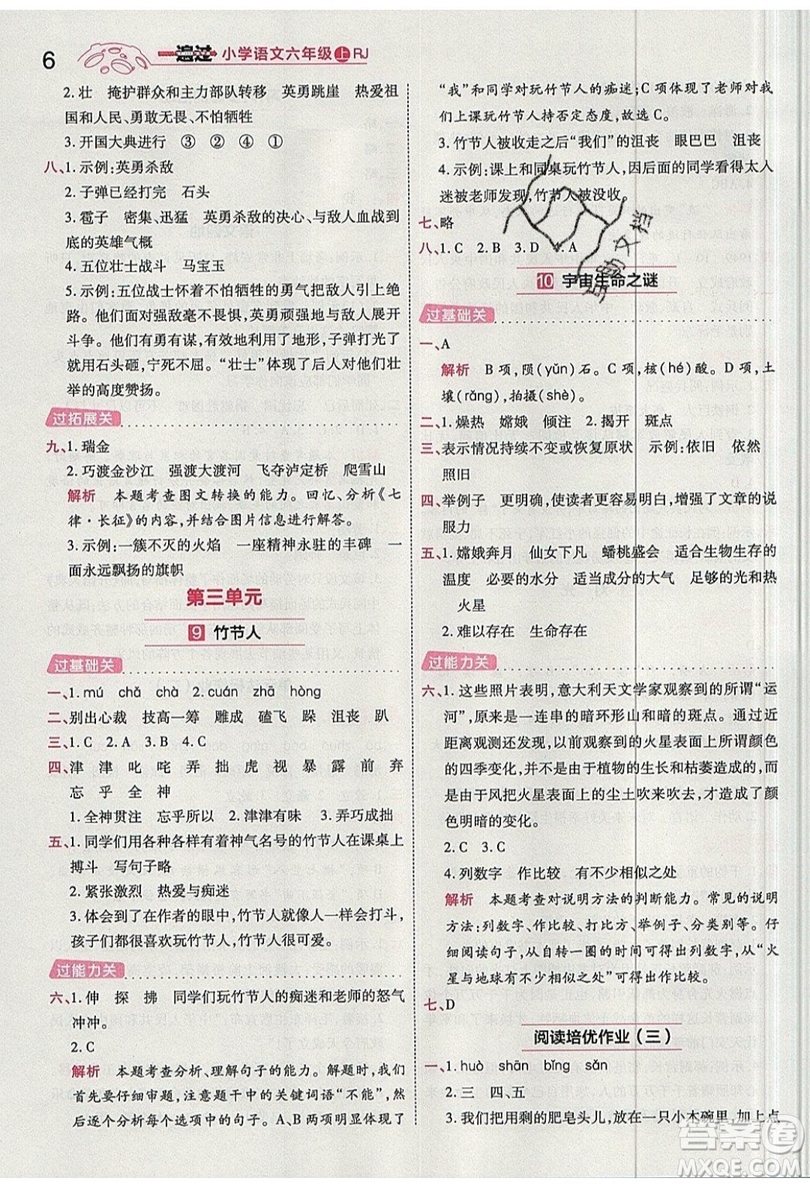 6
一遍过 小学语文六年级 上 RJ
2. 壮 掩护群众和主力部队转移 英勇跳崖 热爱祖
国和人民、英勇无畏、不怕牺牲
3. 开国大典进行 ① ③ ② ④
八、1. 示例:英勇杀敌
2. 子弹已经打完 石头
3. 雹子 密集、迅猛 英勇杀敌的决心、与敌人血战到
底的英雄气概
4. 五位壮士战斗 马宝玉
5. 示例:五位壮士怀着不怕牺牲的勇气居高临下地
射击,面对强敌毫不畏惧,英勇顽强地与敌人展开战
斗。斗争中,他们机智有效地利用了地形,子弹打光了
就用石头砸,宁死不屈。“壮士”体现了人们对他们壮
举的高度赞扬。
过拓展关
九、1. 瑞金
2. 巧渡金沙江 强渡大渡河 飞夺泸定桥 爬雪山
解析 本题考查图文转换的能力。回忆、分析《七
律·长征》的内容,并结合图片信息进行解答。
3. 示例:一簇不灭的火焰 一座精神永驻的丰碑 一
面永远飘扬的旗帜
第三单元
9 竹节人
过基础关
一、1. mú chǎ chà 2. cuán zhā hòng
二、别出心裁 技高一筹 雕成 磕飞 跺 沮丧 趴
三、1. C 2. A 3. B 4. C
四、津 津 叱 咤 弄 拙 虎 视 暴 露 前 弃
忘 乎 全 神
1. 全神贯注 忘乎所以 2. 津津有味 3. 弄巧成拙
五、1. 同学们用各种各样有着神气名号的竹节人在课桌上
搏斗 写句子略
2. 紧张激烈 热爱与痴迷
3. 体会到了在作者的眼中,竹节人像人一样会打斗,
孩子们都很喜欢玩竹节人,玩得很开心。
过能力关
六、1. 伸 探 拂 同学们玩竹节人的痴迷和老师的怒气
冲冲。
2. C
解析 本题考查分析、理解句子的能力。解题时,我们
首先要仔细审题,注意题干中的关键词语“不能”,然后
逐个分析每个选项中的句子。A、B 两项明显体现了
“我”和同学们对玩竹节人的痴迷;C 项体现了老师对
我们上课玩竹节人持否定态度,故选 C。
3. 竹节人被收走之后“我们”的沮丧 眼巴巴 沮丧
4. 示例:课上和同桌玩竹节人,因后面的同学看得太入
迷被老师发现,竹节人被没收。
七、略
八、1. C 2. B 3. D 4. A
10 宇宙生命之谜
过基础关
一、A
解析 B 项,陨(yǔn)石。C 项,核(hé)酸。D 项,土
壤(rǎng),拍摄(shè)。
二、1. 燥热 嫦娥 倾注 2. 揭开 斑点
三、表示情况持续不变或恢复原状 示例:依旧 依然
照旧
四、举例子 更明确,使读者更容易明白,增强了文章的说
服力
五、1. 嫦娥奔月 仙女下凡 蟠桃盛会 适合生物生存的
温度 必要的水分 适当成分的大气 足够的光和热
火星
2. 难以存在 生命存在
过能力关
六、1. 这些照片表明,意大利天文学家观察到的所谓“运
河”,原来是一连串的暗环形山和暗的斑点。通过多次
近距离观测,还发现以前人们猜测的火星表面的所谓
的四季变化,并不是由于植物的生长和枯萎造成的,而
是由于风把火星表面上的尘土吹来吹去,才造成颜色
明暗的变化。
2. C 3. C
4. 列数字 作比较 有不少相似之处
解析 本题考查对说明方法的判断能力。常见的说明
方法:列数字、作比较、打比方、举例子、分类别等。仔
细阅读句子,从“自转一圈的时间”可以看出列数字,“火
星与地球有不少相似之处”可以看出作比较。
七、D
阅读培优作业(三)
一、1. huò shān bǐng sǎn
2. 三 四、五
3. 我们把用剩的肥皂头儿,放在一只小木碗里,加上点
答案圈
MXQE.COM